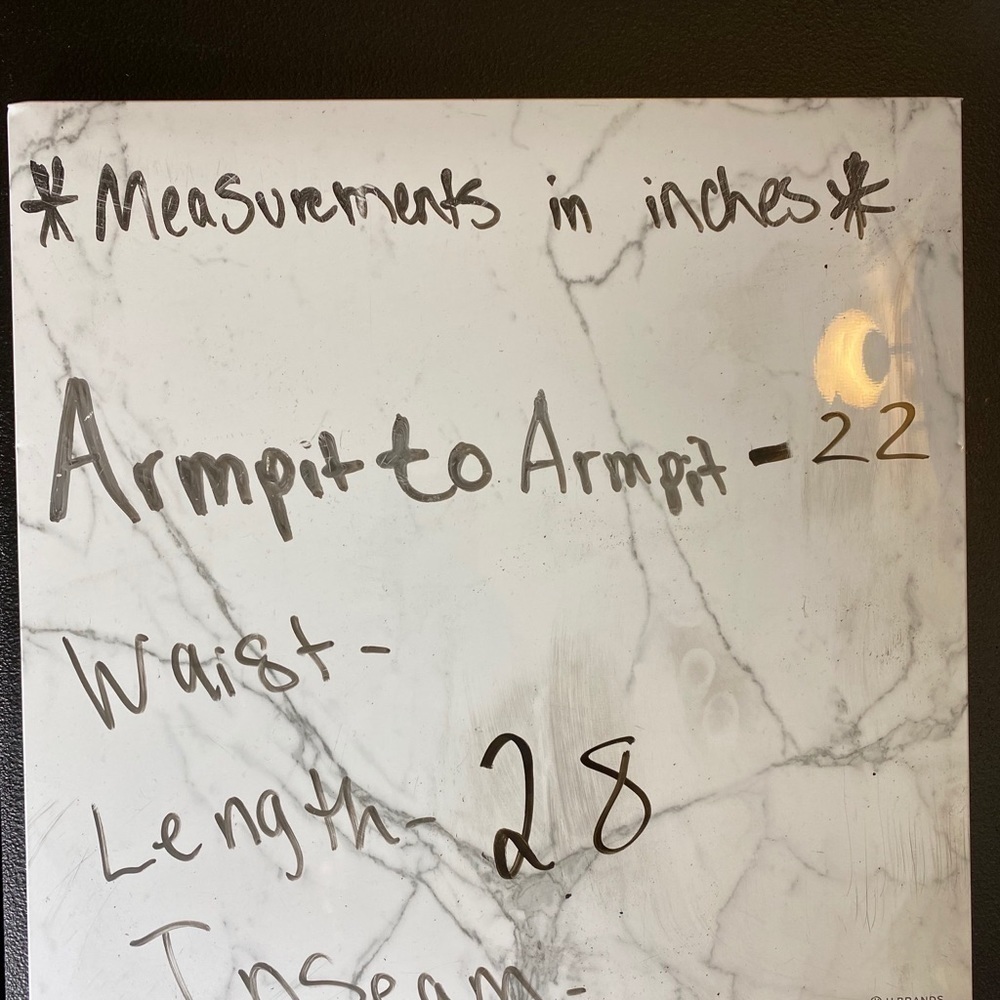 *Measurements in inches*
Armpit to Armpit - 22
Waist -
Length - 28
Inseam -
U BRANDS